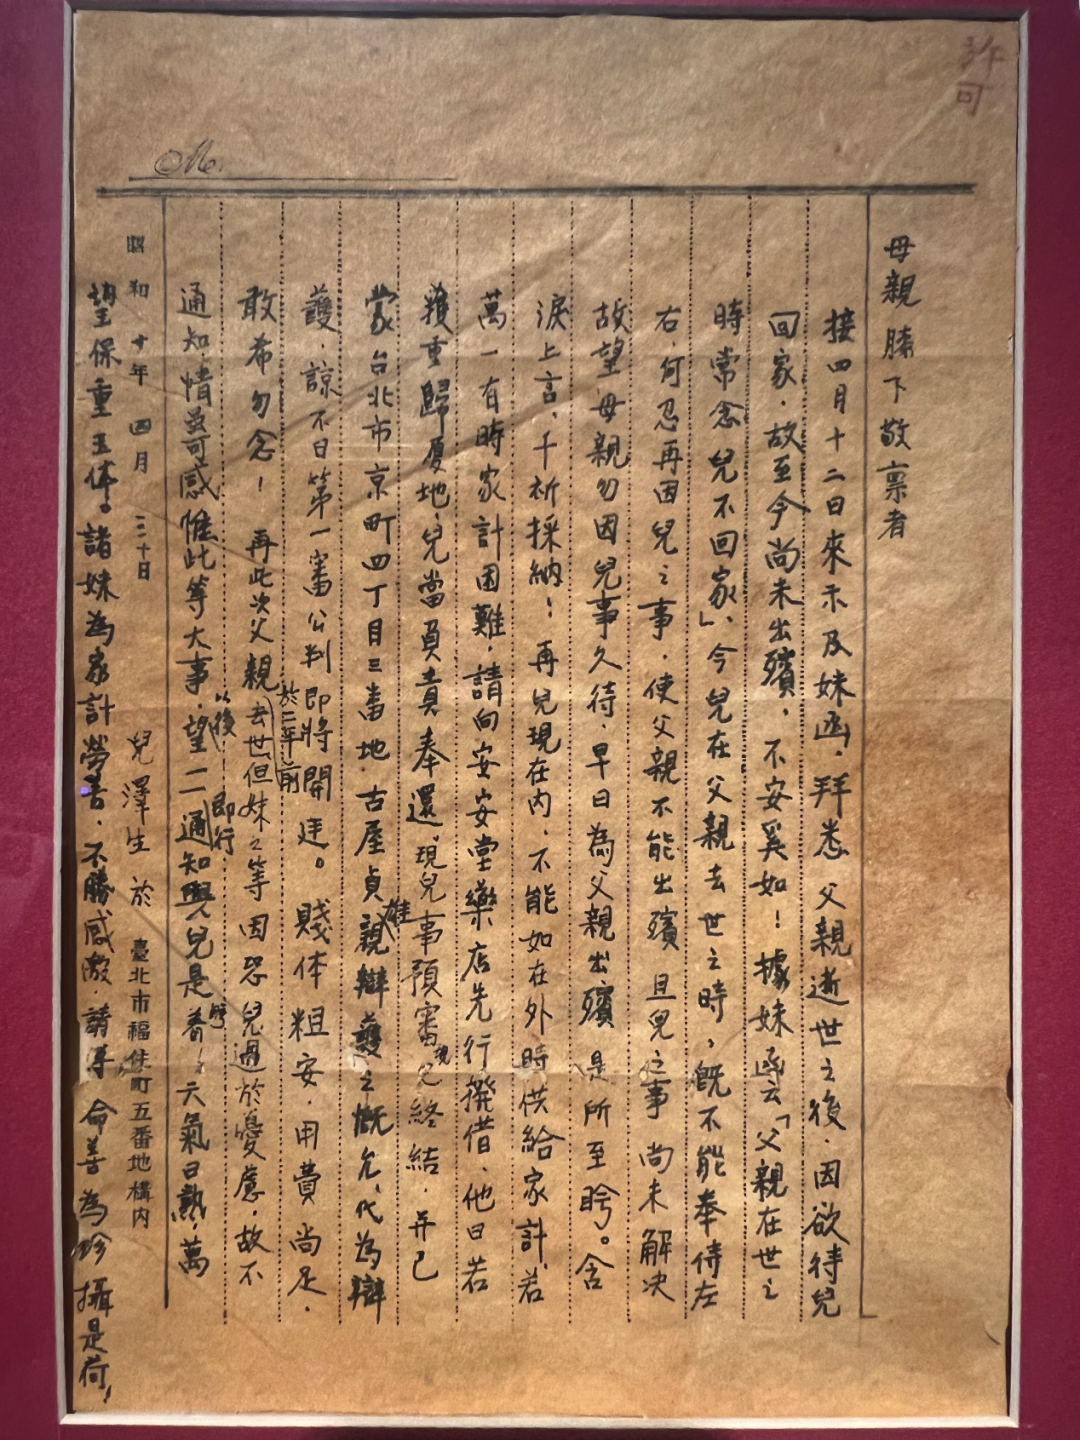 許可
No.
母親膝下敬禀者
接四月十二日來示及妹函，拜悉 父親逝世之後，因欲待兒
回家，故至今尚未出殯，不安奚如！據妹函云「父親在世之
時常念兒不回家」，今兒在父親去世之時，既不能奉侍左
右，何忍再因兒之事，使父親不能出殯 且兒之事 尚未解決
故望母親勿因兒事久待，早日為父親出殯 是所至盼。含
淚上言，千祈採納！ 再兒現在內，不能如在外時供給家計，若
萬一有時家計困難，請向安安堂藥店先行撥借，他日若
獲重歸厦地，兒當負責奉還，現兒事預審現已終結，并已
蒙台北市京町四丁目三番地 古屋貞雄親辯護之慨允，代為辯
護，諒不日第一審公判即將開廷。 賤体粗安，用費尚足，
敢希勿念！ 再此次父親於二年前去世但妹之等因恐兒過於憂慮，故不
通知情尊可感惟此等大事，望以後一一即行通知與兒是荷！天氣日熱，萬
望保重玉体。諸妹為家計勞苦，不勝感激 請 命善為珍攝是荷！
昭和 十年 四月 三十日 兒澤生 於 臺北市福住町五番地構內